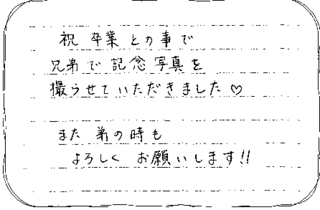 祝 卒業 との事で
兄弟で 記念 写真を
撮らせていただきました♡
また 弟の時も
よろしく お願いします!!